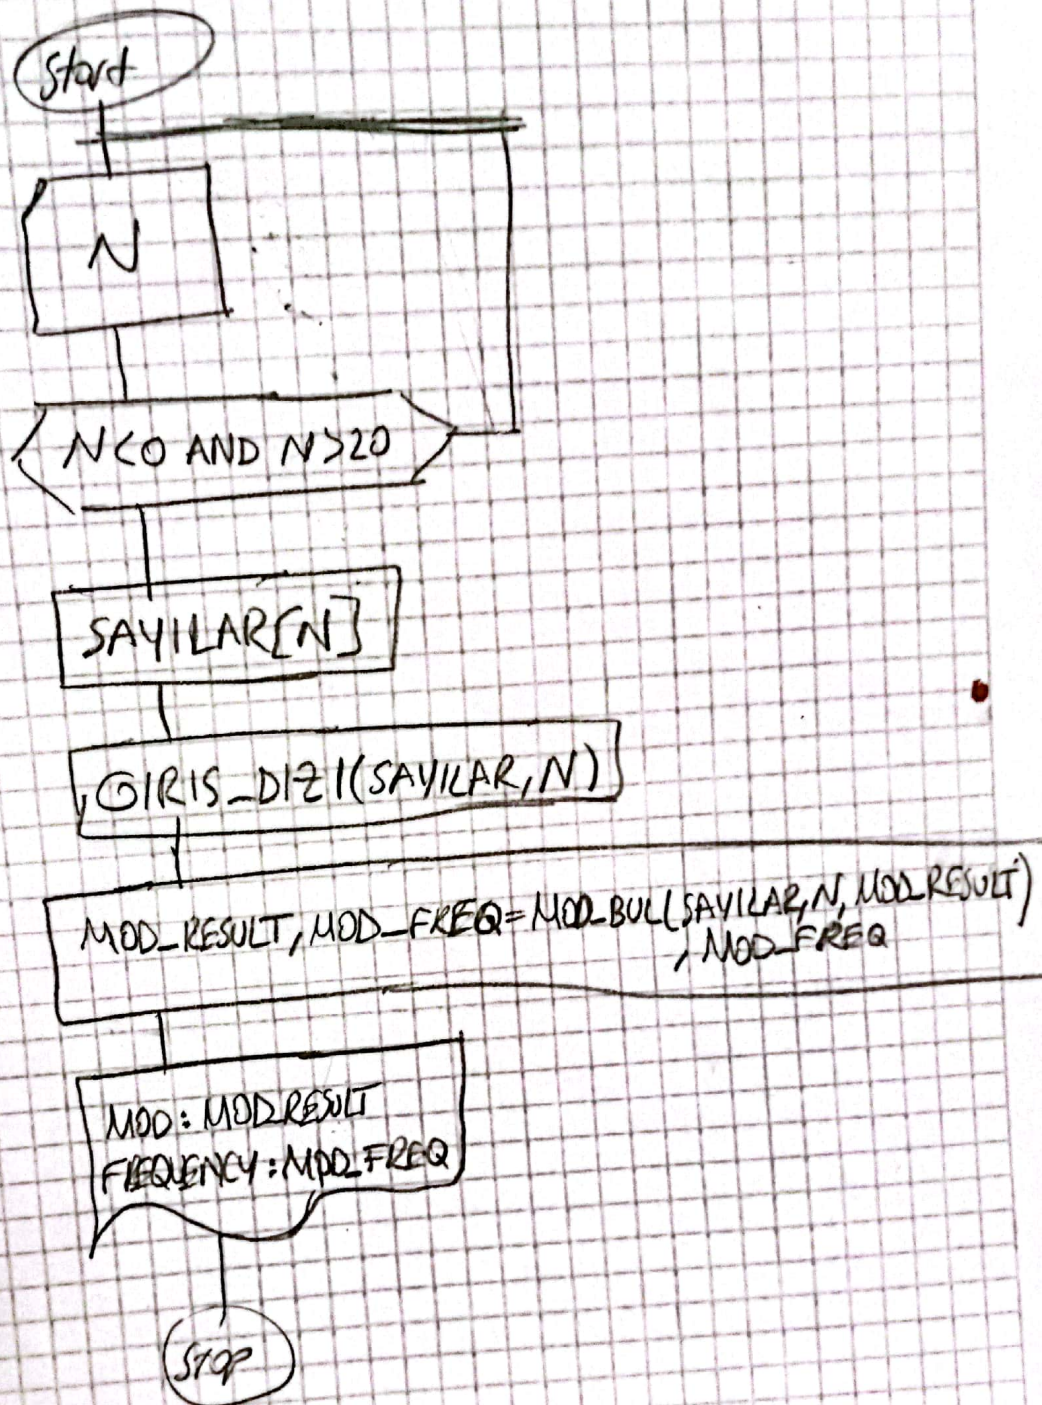 Start
N
N<0 AND N>20
SAYILAR[N]
GIRIS_DIZI(SAYILAR,N)
MOD_RESULT,MOD_FREQ=MOD_BUL(SAYILAR,N,MOD_RESULT)
,MOD_FREQ
MOD:MOD_RESULT
FREQUENCY:MOD_FREQ
STOP